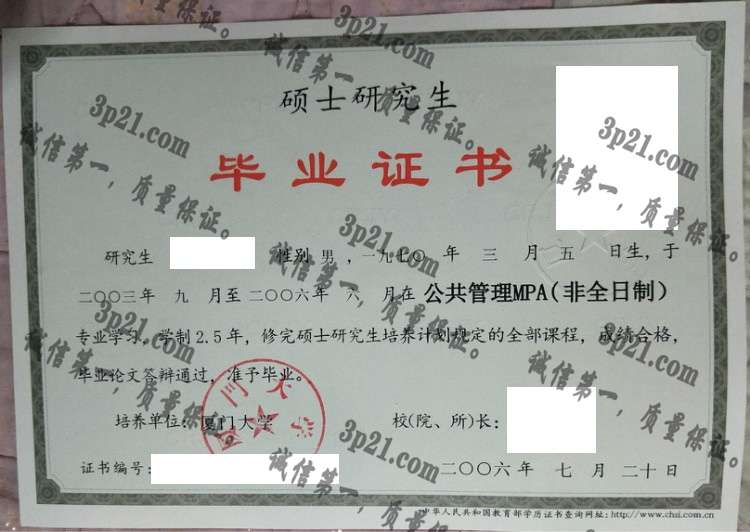 硕士研究生
毕业证书
研究生 性别 男 ，一九七〇 年 三 月 五 日生，于
二〇〇三年 九 月至二〇〇六年 六 月在 公共管理MPA(非全日制)
专业学习，学制2.5年，修完硕士研究生培养计划规定的全部课程，成绩合格，
毕业论文答辩通过，准予毕业。
培养单位：厦门大学 校(院、所)长：
证书编号：
二〇〇六年 七 月 二十日
中华人民共和国教育部学历证书查询网址：http://www.chsi.com.cn
厦门大学
3p21.com
诚信第一，质量保证。
3p21.com
诚信第一，质量保证。
3p21.com
诚信第一，质量保证。
3p21.com
诚信第一，质量保证。
3p21.com
诚信第一，质量保证。
3p21.com
诚信第一，质量保证。
3p21.com
诚信第一，质量保证。